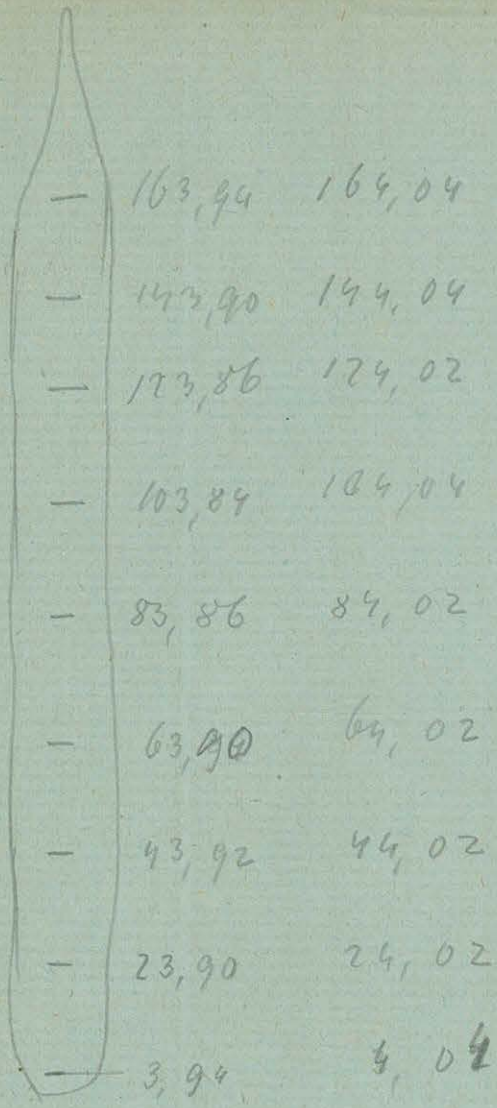 163,94 164,04
143,90 144,04
123,86 124,02
103,84 104,04
83,86 84,02
63,90 64,02
43,92 44,02
23,90 24,02
3,94 4,04